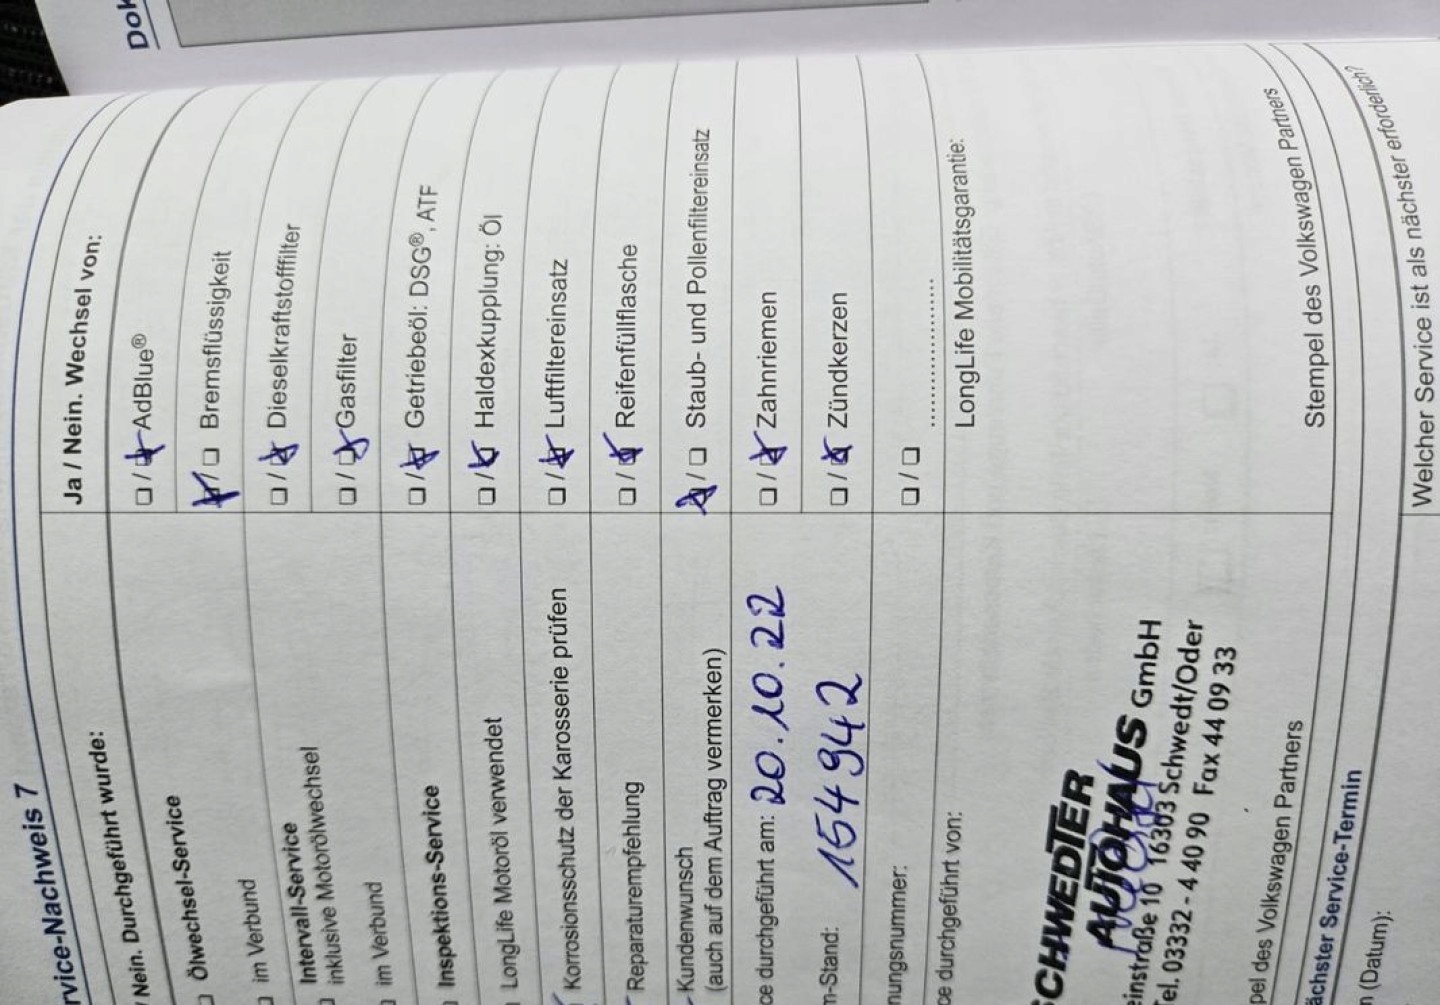 Dok
rvice-Nachweis 7
Nein. Durchgeführt wurde:
Ölwechsel-Service
im Verbund
Intervall-Service
inklusive Motorölwechsel
im Verbund
Inspektions-Service
LongLife Motoröl verwendet
Korrosionsschutz der Karosserie prüfen
Reparaturempfehlung
Kundenwunsch
(auch auf dem Auftrag vermerken)
ce durchgeführt am: 20.10.22
m-Stand: 154942
nungsnummer:
ce durchgeführt von:
SCHWEDTER
AUTOHAUS GmbH
einstraße 10 16303 Schwedt/Oder
el. 03332 - 4 40 90 Fax 44 09 33
pel des Volkswagen Partners
Ja / Nein. Wechsel von:
AdBlue®
Bremsflüssigkeit
Dieselkraftstofffilter
Gasfilter
Getriebeöl: DSG®, ATF
Haldexkupplung: Öl
Luftfiltereinsatz
Reifenfüllflasche
Staub- und Pollenfiltereinsatz
Zahnriemen
Zündkerzen
LongLife Mobilitätsgarantie:
Stempel des Volkswagen Partners
ächster Service-Termin
(Datum):
Welcher Service ist als nächster erforderlich?